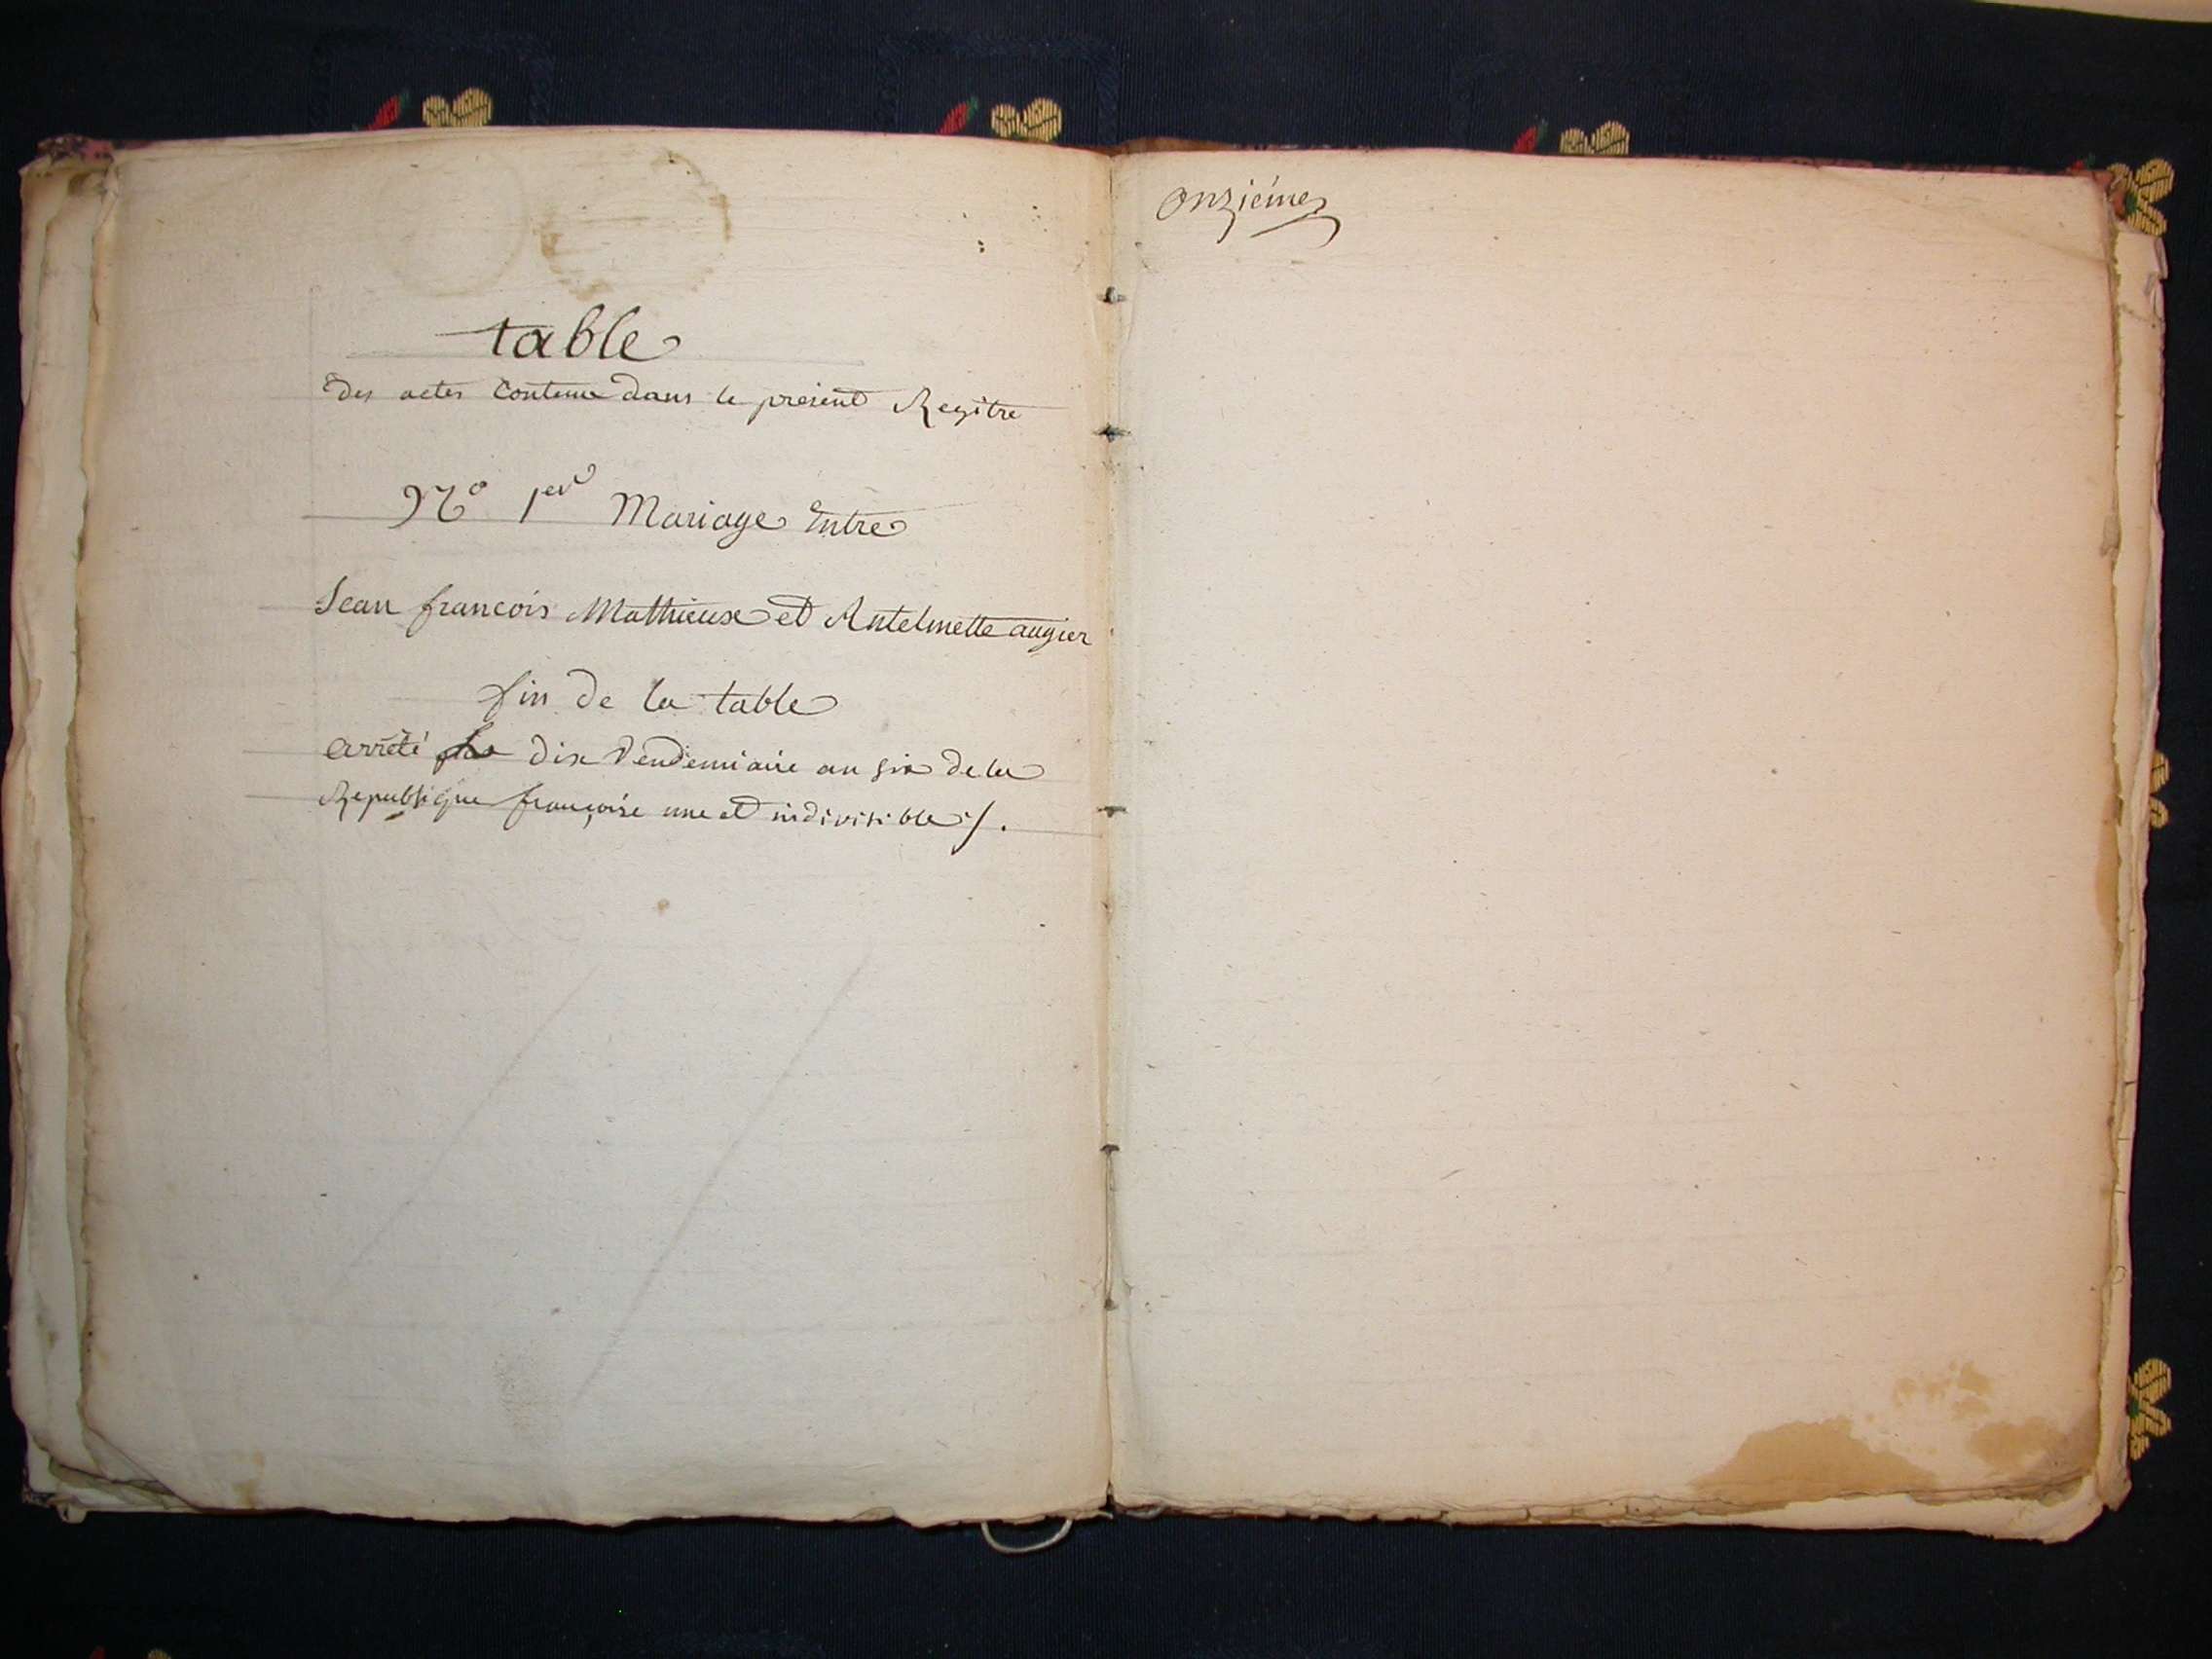 table
des actes contenue dans le present Regitre
No 1er Mariage Entre
Jean francois Mathieux et Antelmette augier
fin de la table
arrêté le dix Vendemiaire an six de la
Republique françoise une et indivisible ./.
onziéme